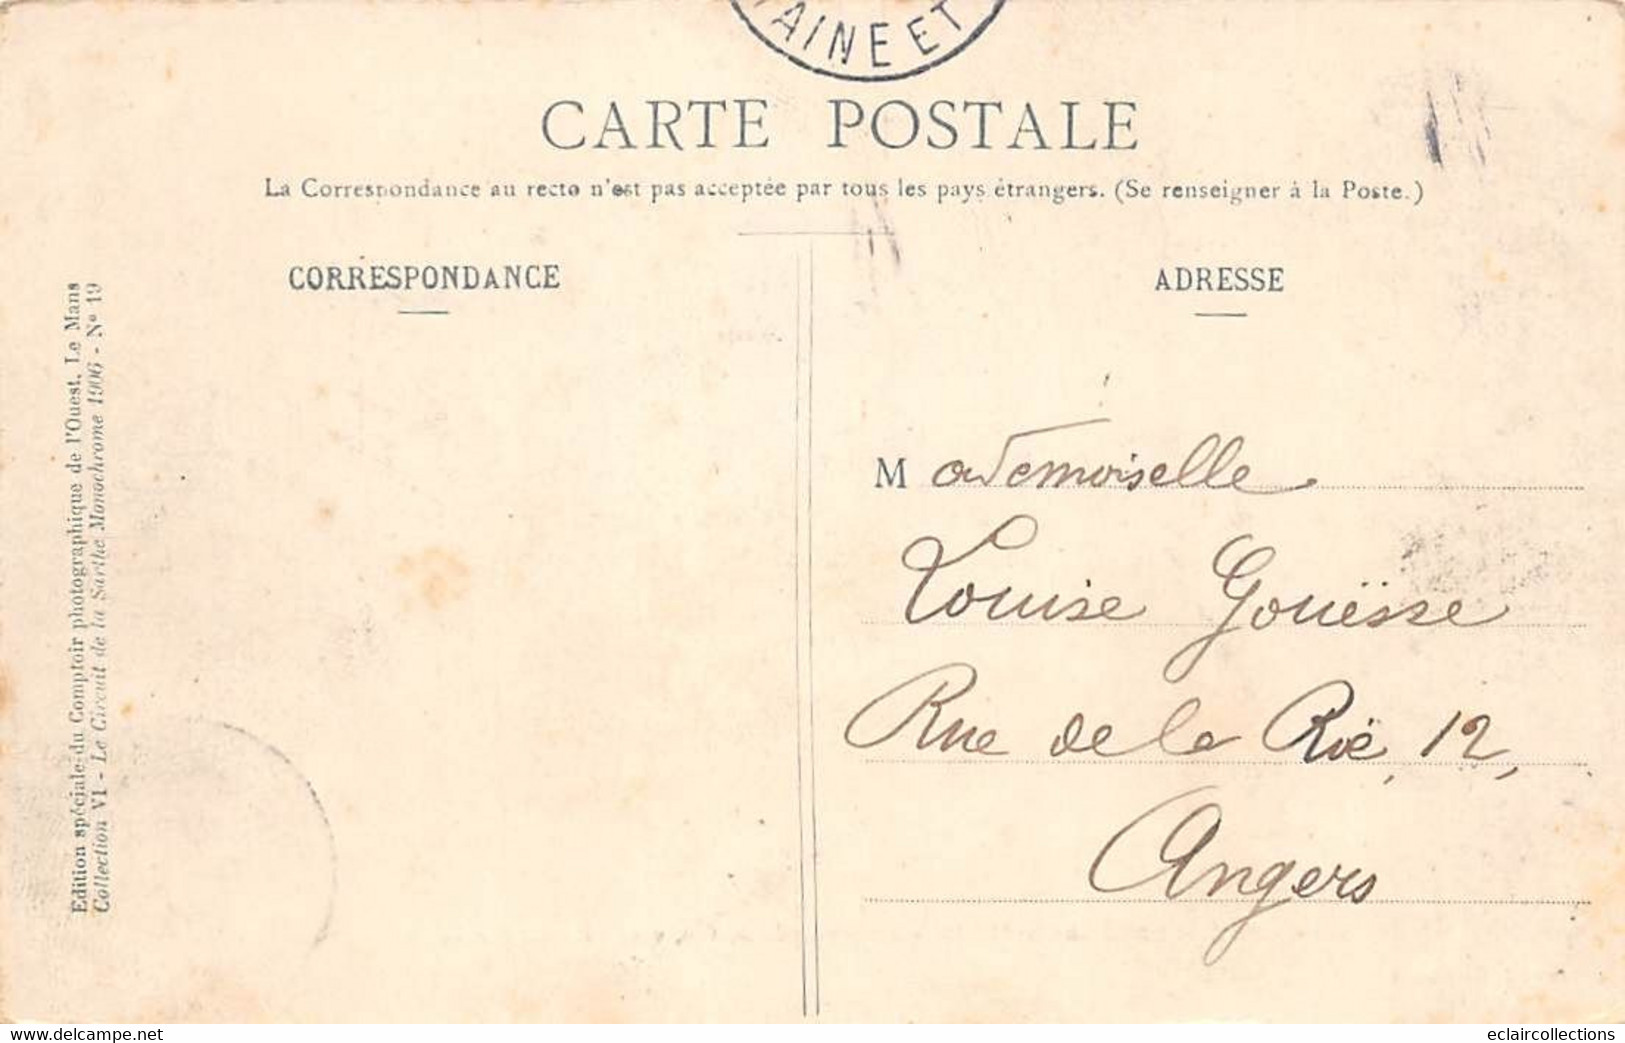 AINE ET
CARTE POSTALE
La Correspondance au recto n'est pas acceptée par tous les pays étrangers. (Se renseigner à la Poste.)
CORRESPONDANCE
ADRESSE
Edition spéciale du Comptoir photographique de l'Ouest. Le Mans
Collection VI - Le Circuit de la Sarthe Monochrome 1906 - N° 19
Mademoiselle
Louise Gouësse
Rue de la Roë, 12,
Angers
www.delcampe.net
eclaircollections